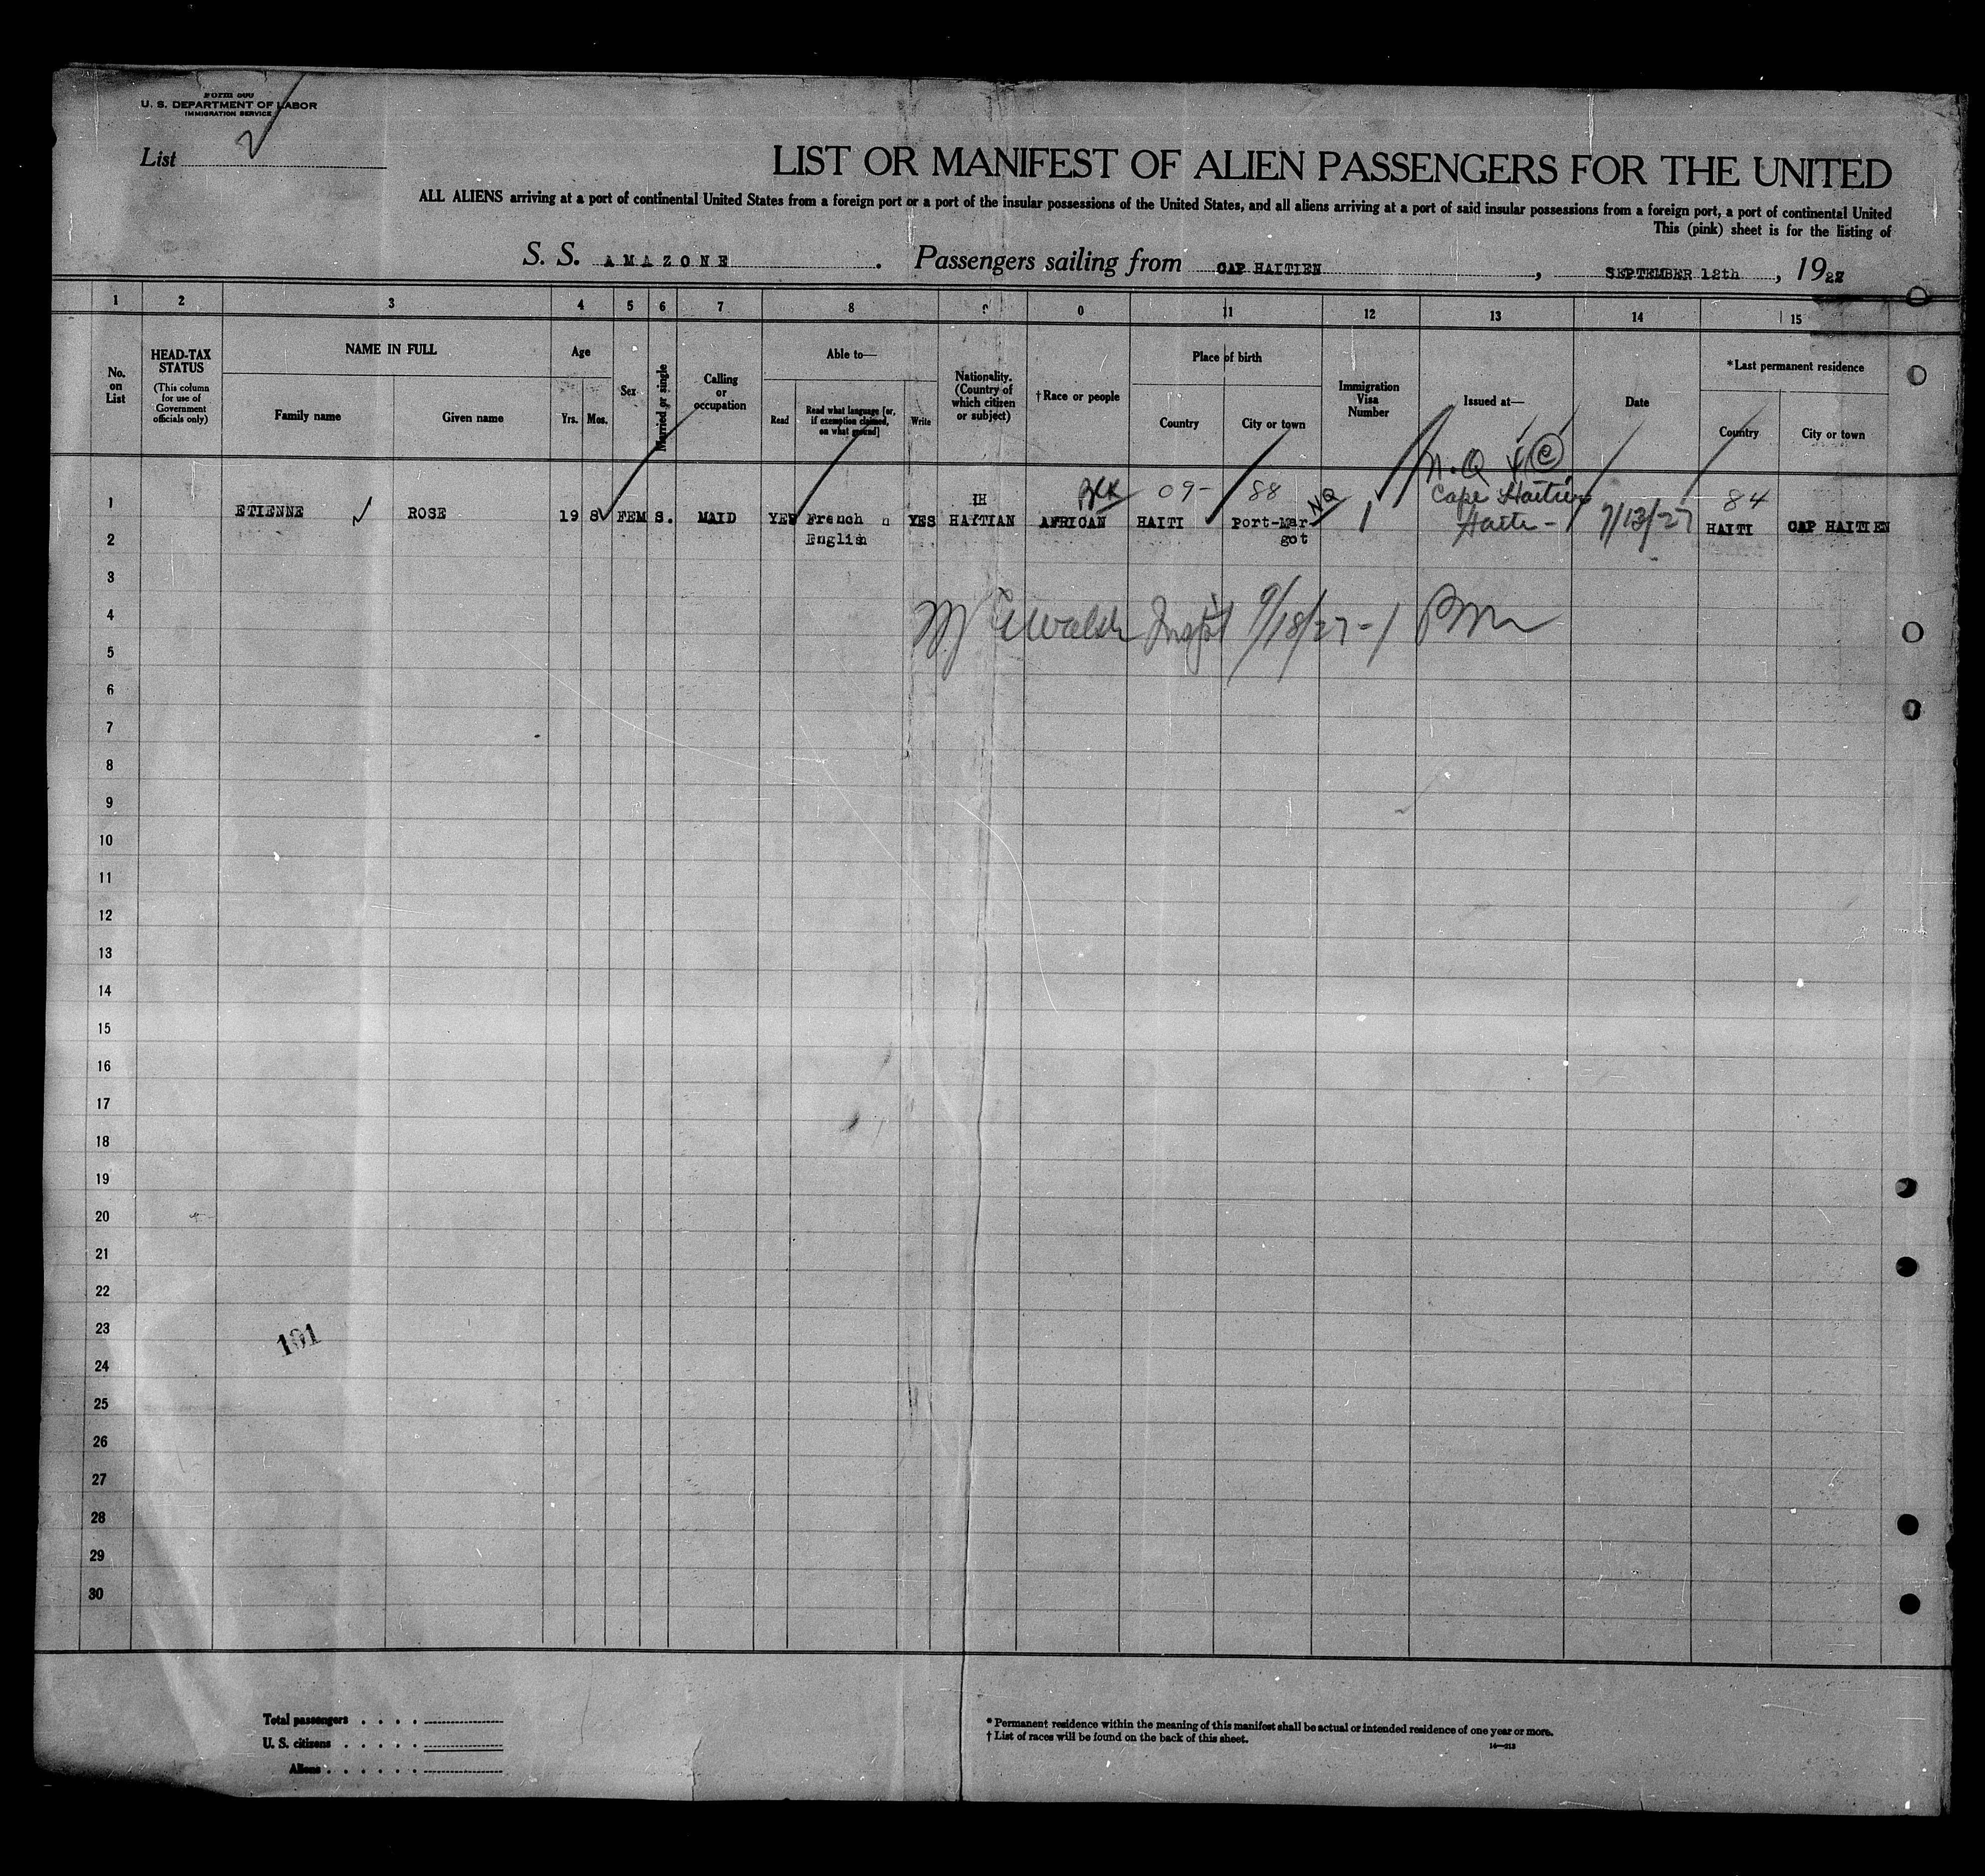 Form 500
U. S. DEPARTMENT OF LABOR
IMMIGRATION SERVICE
List 2
LIST OR MANIFEST OF ALIEN PASSENGERS FOR THE UNITED
ALL ALIENS arriving at a port of continental United States from a foreign port or a port of the insular possessions of the United States, and all aliens arriving at a port of said insular possessions from a foreign port, a port of continental United
This (pink) sheet is for the listing of
S. S. AMAZONE . Passengers sailing from CAP HAITIEN , SEPTEMBER 12th , 1927
1 2 3 4 5 6 7 8 9 0 11 12 13 14 15
No. on List
HEAD-TAX STATUS
(This column for use of Government officials only)
NAME IN FULL
Family name
Given name
Age
Yrs. Mos.
Sex
Married or single
Calling or occupation
Able to—
Read
Read what language [or, if exemption claimed, on what ground]
Write
Nationality. (Country of which citizen or subject)
†Race or people
Place of birth
Country
City or town
Immigration Visa Number
Issued at—
Date
*Last permanent residence
Country
City or town
N.Q C
IH BLK 09- 88 NQ Cape Haitien 84
1 ETIENNE ROSE 19 8 FEM S. MAID YES French YES HAITIAN AFRICAN HAITI Port-Mar- 1 Haiti - 7/13/27 HAITI CAP HAITIEN
2 English got
3
4 9/18/27-1
5
6
7
8
9
10
11
12
13
14
15
16
17
18
19
20
21
22
23
101
24
25
26
27
28
29
30
Total passengers . . . .
U. S. citizens . . . . .
Aliens . . . . . .
* Permanent residence within the meaning of this manifest shall be actual or intended residence of one year or more.
† List of races will be found on the back of this sheet.